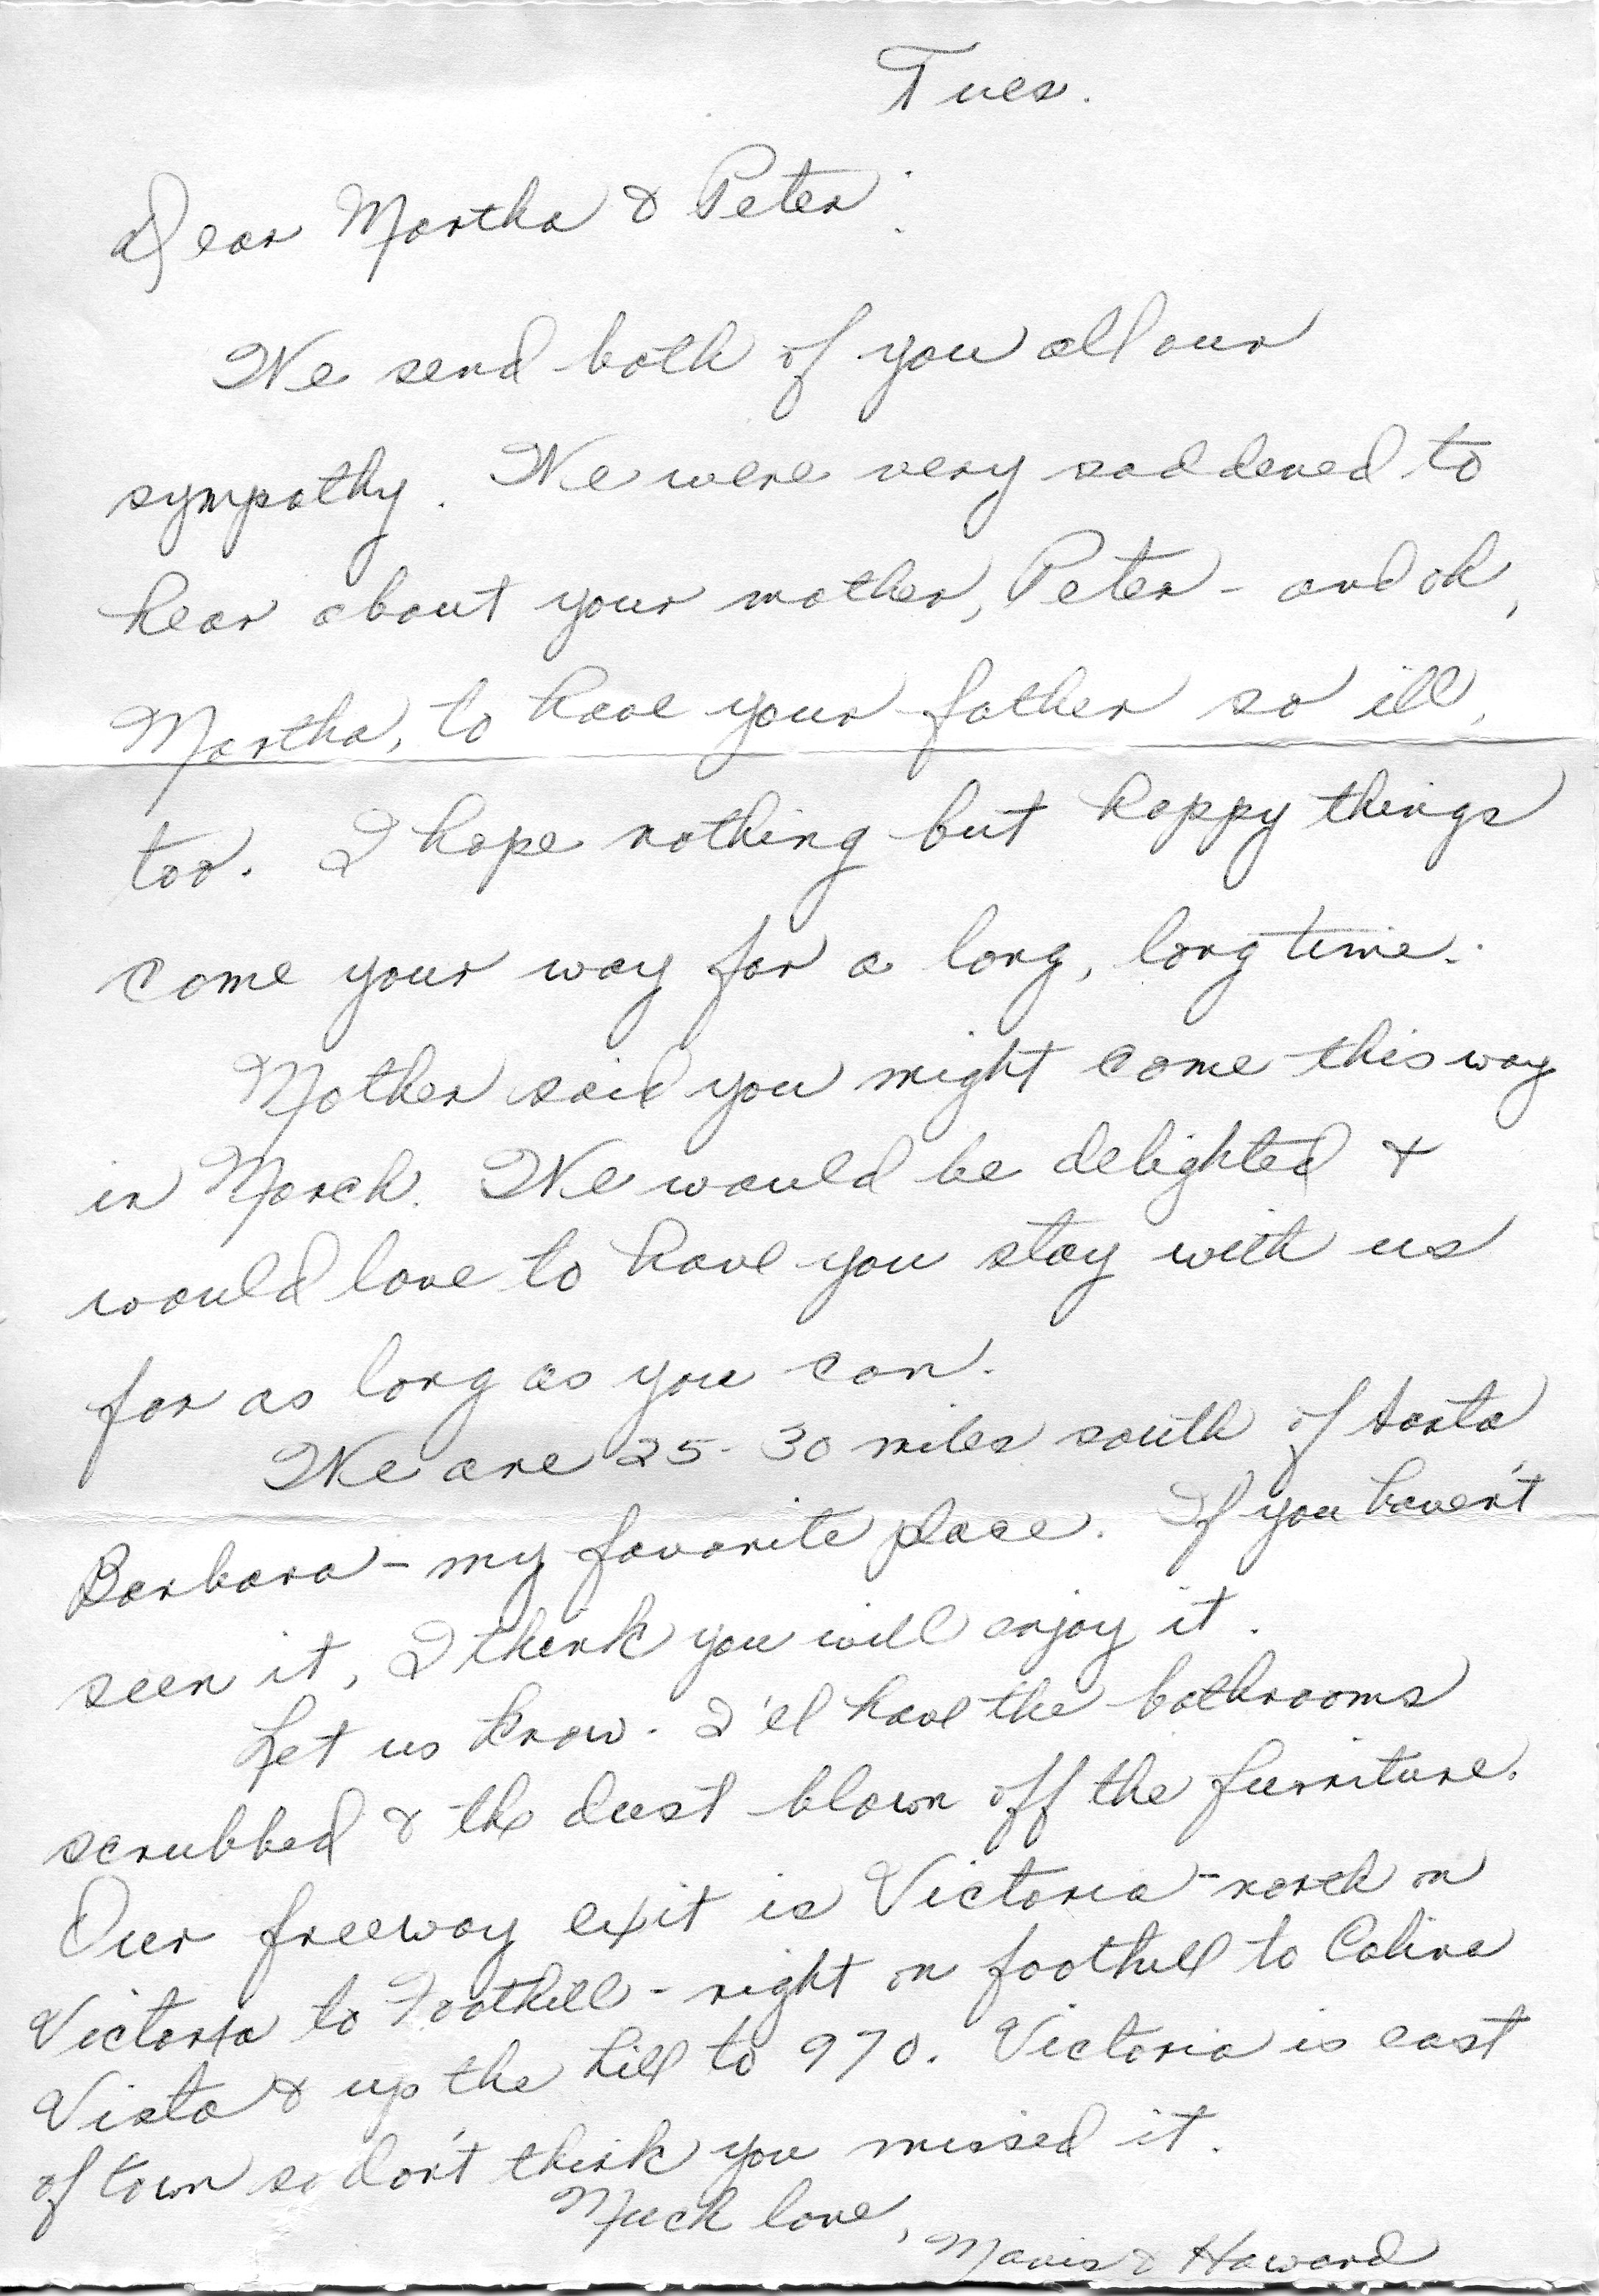 Tues.
Dear Martha & Peter:
We send both of you all our
sympathy. We were very saddened to
hear about your mother, Peter - and oh,
Martha, to have your father so ill,
too. I hope nothing but happy things
come your way for a long, long time.
Mother said you might come this way
in March. We would be delighted &
would love to have you stay with us
for as long as you can.
We are 25-30 miles south of Santa
Barbara - my favorite place. If you haven't
seen it, I think you will enjoy it.
Let us know. I'll have the bathrooms
scrubbed & the dust blown off the furniture.
Our freeway exit is Victoria - north on
Victoria to Foothill - right on foothill to Colina
Vista & up the hill to 970. Victoria is east
of town so don't think you missed it.
Much love,
Mavis & Howard